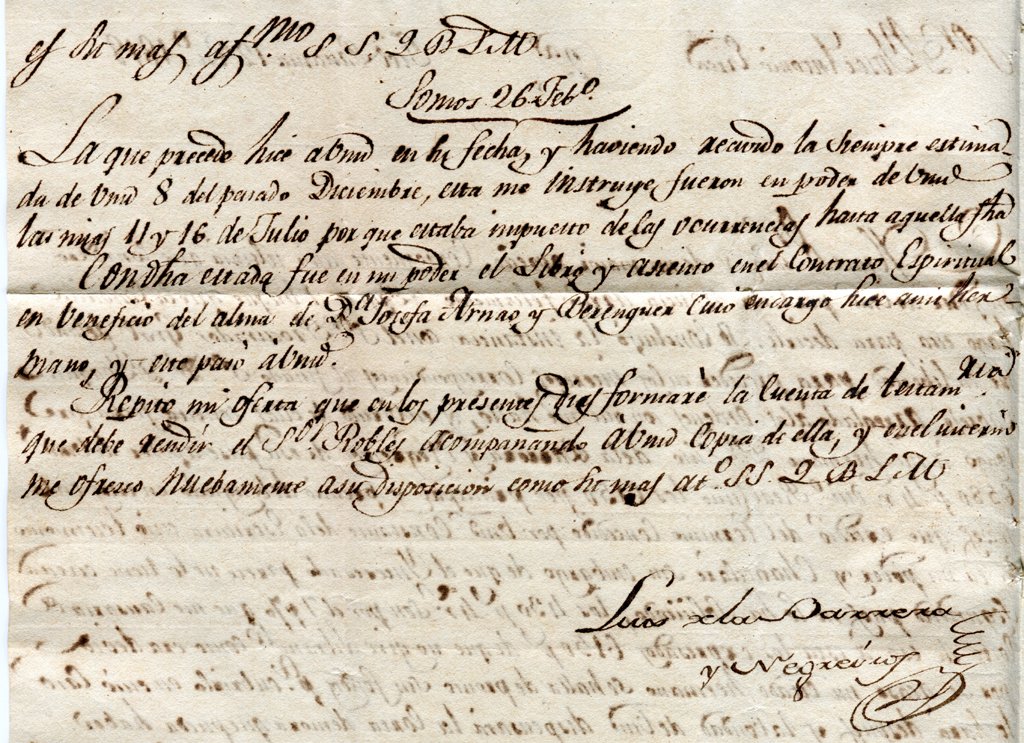 es su mas af.mo S. S. Q B L M.
Somos 26 Feb.o
La que precede hice a Vmd en su fecha, y haviendo recivido la siempre estima
da de Vmd 8 del pasado Diciembre, esta me instruye, fueron en poder de Vmd
las mias 11 y 16 de Julio por que estaba impuesto de las ocurrencias hasta aquella fha
Con dha estada fue en mi poder el Libro y asiento en el Contrato Espiritual
en beneficio del alma de D.a Josefa Arnao y Berenguer cuio encargo hice a mi her
mano, y este pasó á Vmd.
Repito mi oferta que en los presentes Dias formaré la Cuenta de testam.ria
que debe rendir el S.or Robles acompañando á Vmd copia de ella, y en el interin
me ofresco nuebamente a su disposicion como su mas at.o SS. Q B L M
Luis de la Barrera
y Negreiros